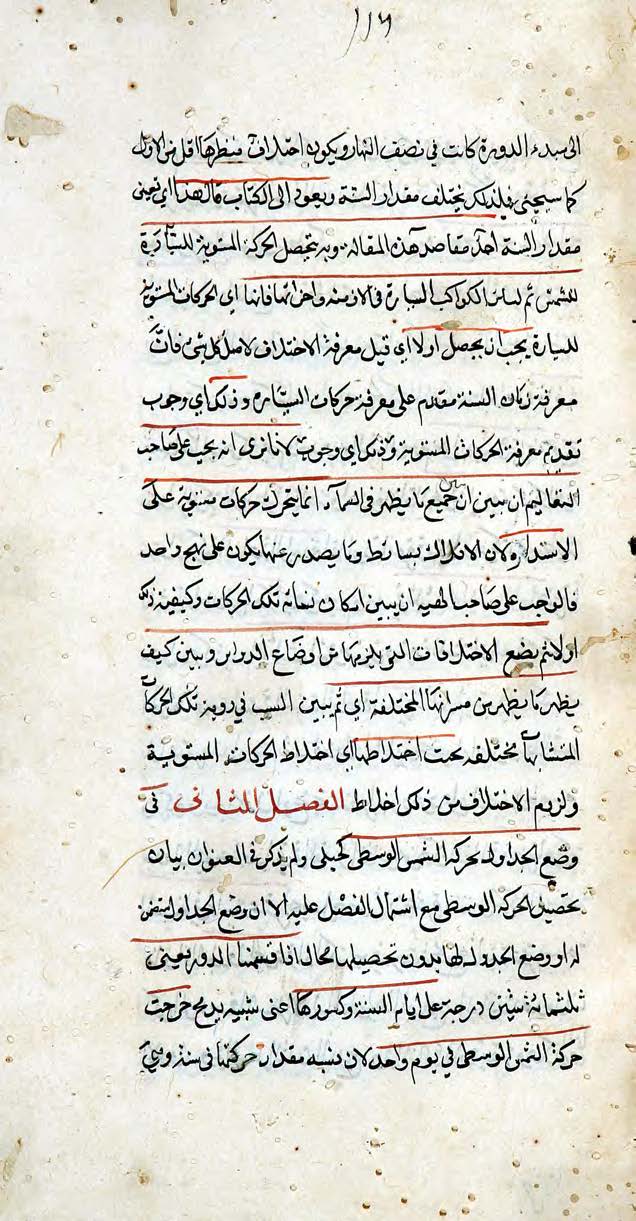 ١١٦
الى مبدء الدورة كانت في نصف النهار ويكون اختلاف منظرها اقل من الاول
كما سيجئ فلذلك يختلف مقدار السنة ويعود الى الكتاب قال هذا اي تعيين
مقدار السنة احد مقاصد هذه المقالة وبه يتحصل الحركة المستوية
للشمس ثم لسائر الكواكب السيارة في الازمنه واجزائها فانها اي الحركات المستوية
للسيارة يجب ان يحصل اولا اي قبل معرفة الاختلاف لاصل كل شئ فان
معرفة زمان السنة مقدم على معرفة حركات السياره وذلك اي وجوب
تقديم معرفة الحركات المستوية وذلك اي وجوب لانا نرى انه يجب على صاحب
التعاليم ان يبين ان جميع ما يظهر في السماء انما يتحرك حركات مستوية على
الاستدارة لان الافلاك بسائط وما يصدر عنها يكون على نهج واحد
فالواجب على صاحب الهيه ان يبين امكان تلك الحركات وكيفية ذلك
اولا ثم يضع الاختلافات التي يلزمها من اوضاع الدوائر ويبين كيف
يظهر ما يظهر من مسيراتها المختلفة اي ثم يبين السبب في روية تلك الحركات
المتشابهة مختلفه تحت اختلاطها اي اختلاط الحركات المستوية
ولزوم الاختلاف من ذلك اخلاط الفصل الثانى فى
وضع الجداول لحركة الشمس الوسطى ولم يذكر في العنوان بيان
تحصيل الحركة الوسطى مع اشتمال الفصل عليه الا ان وضع الجداول متضمن
له او وضع الجدول لها بدون تحصيلها محال اذا قسمنا الدور يعنى
ثلثمائة ستين درجة على ايام السنة وكسورها اعنى شسيه يد مح خرجت
حركة الشمس الوسطى في يوم واحد لان نسبه مقدار حركتها فى سنة